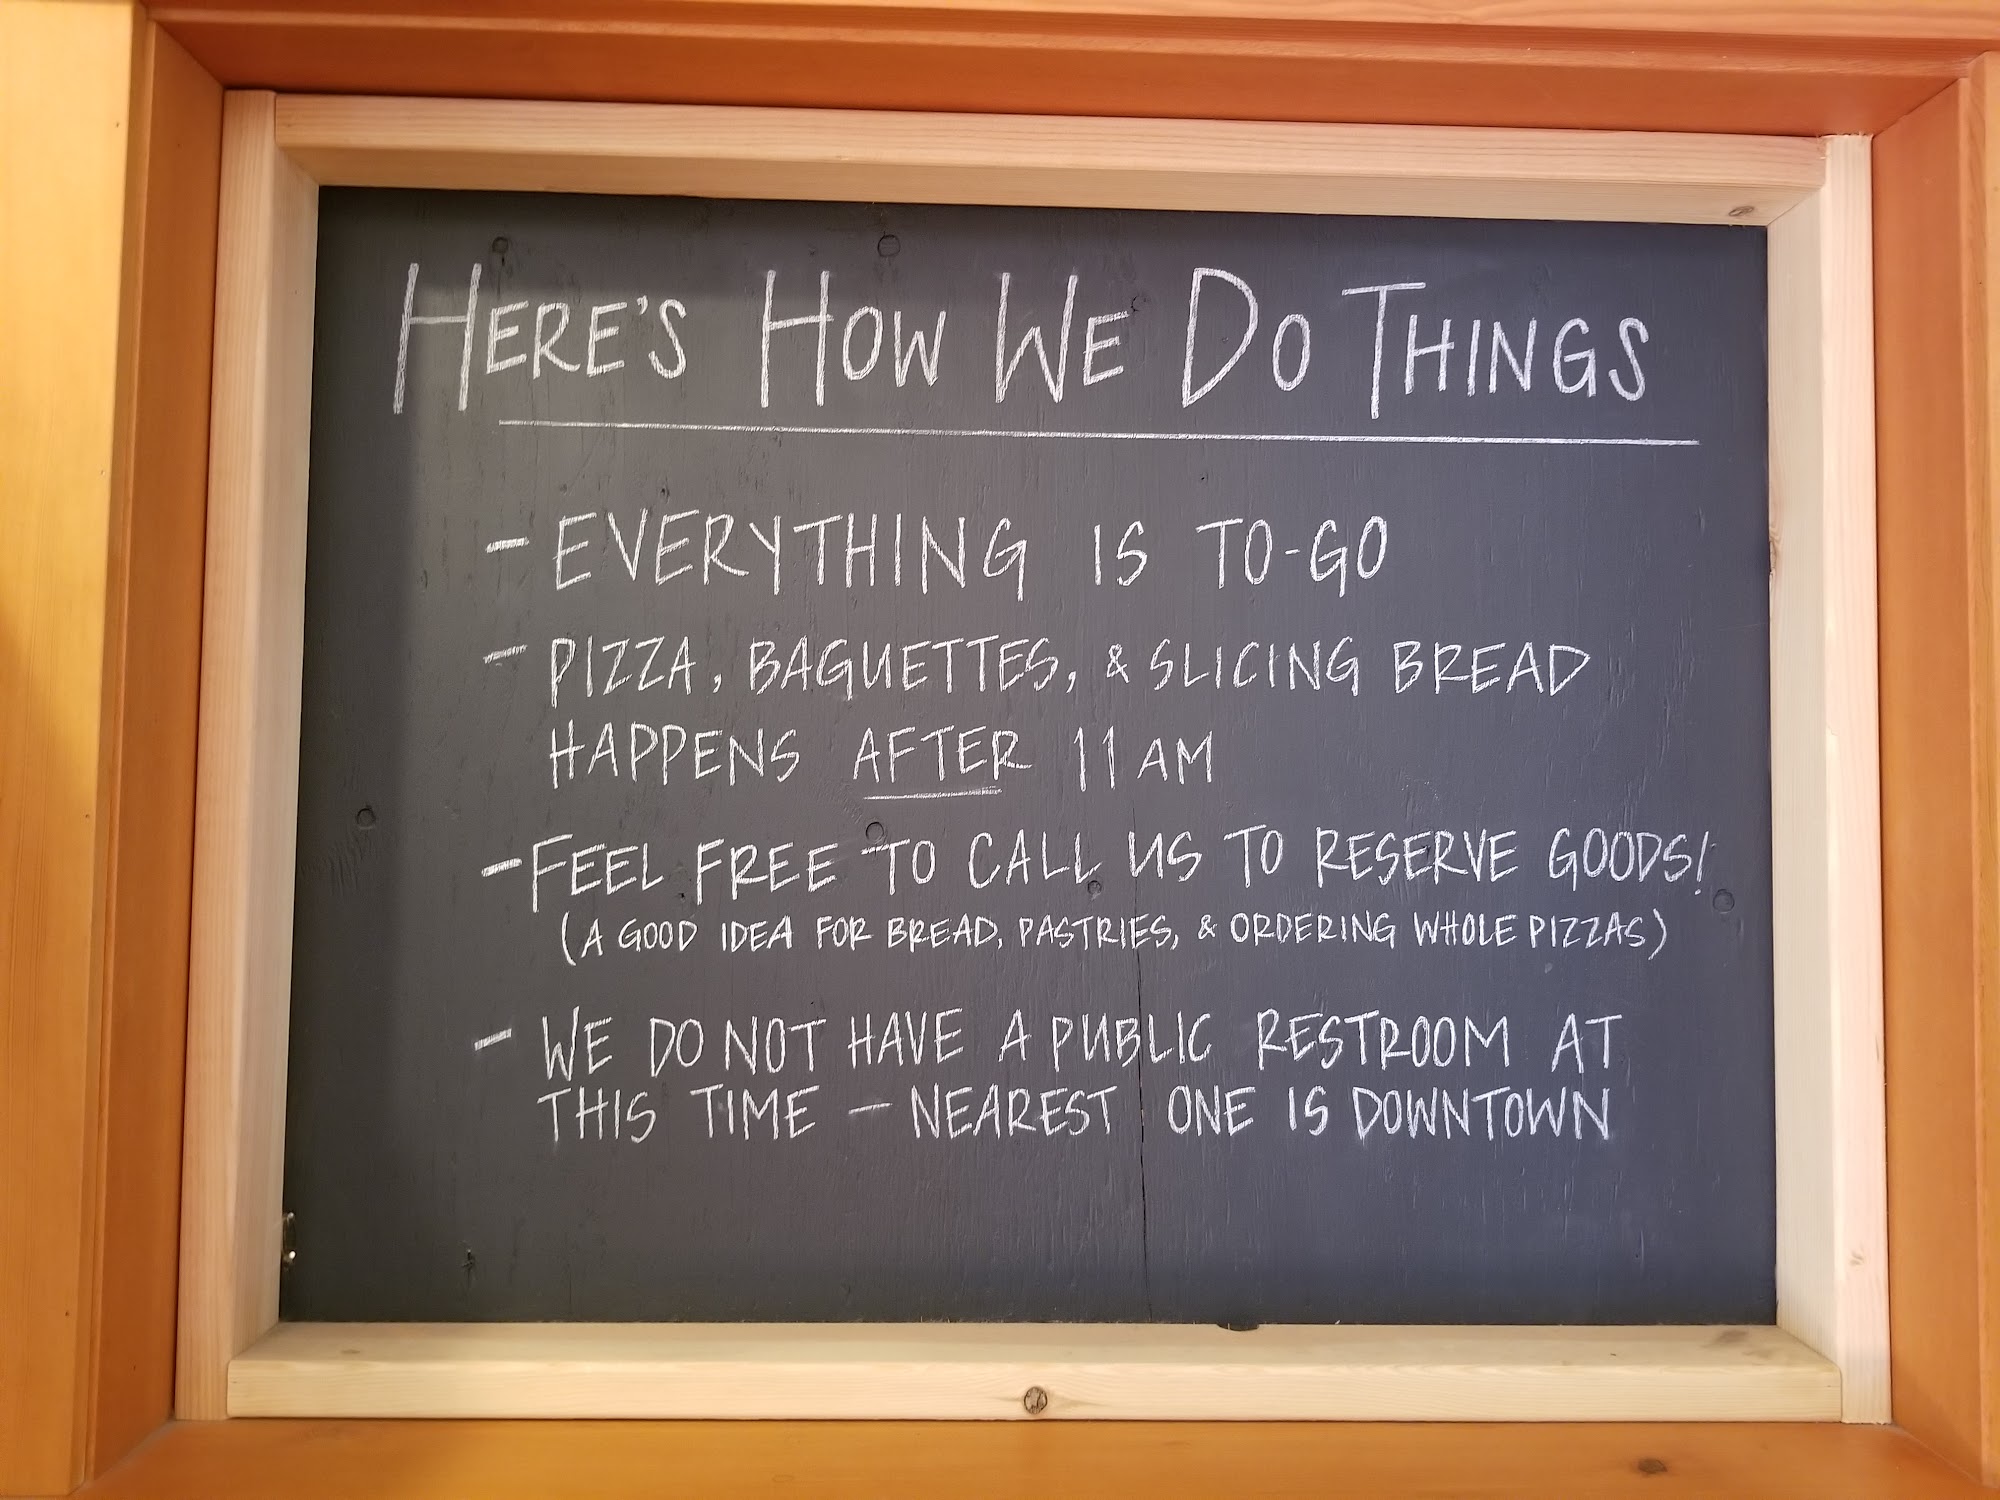 HERE'S HOW WE DO THINGS
- EVERYTHING IS TO-GO
- PIZZA, BAGUETTES, & SLICING BREAD
HAPPENS AFTER 11 AM
- FEEL FREE TO CALL US TO RESERVE GOODS!
(A GOOD IDEA FOR BREAD, PASTRIES, & ORDERING WHOLE PIZZAS)
- WE DO NOT HAVE A PUBLIC RESTROOM AT
THIS TIME — NEAREST ONE IS DOWNTOWN